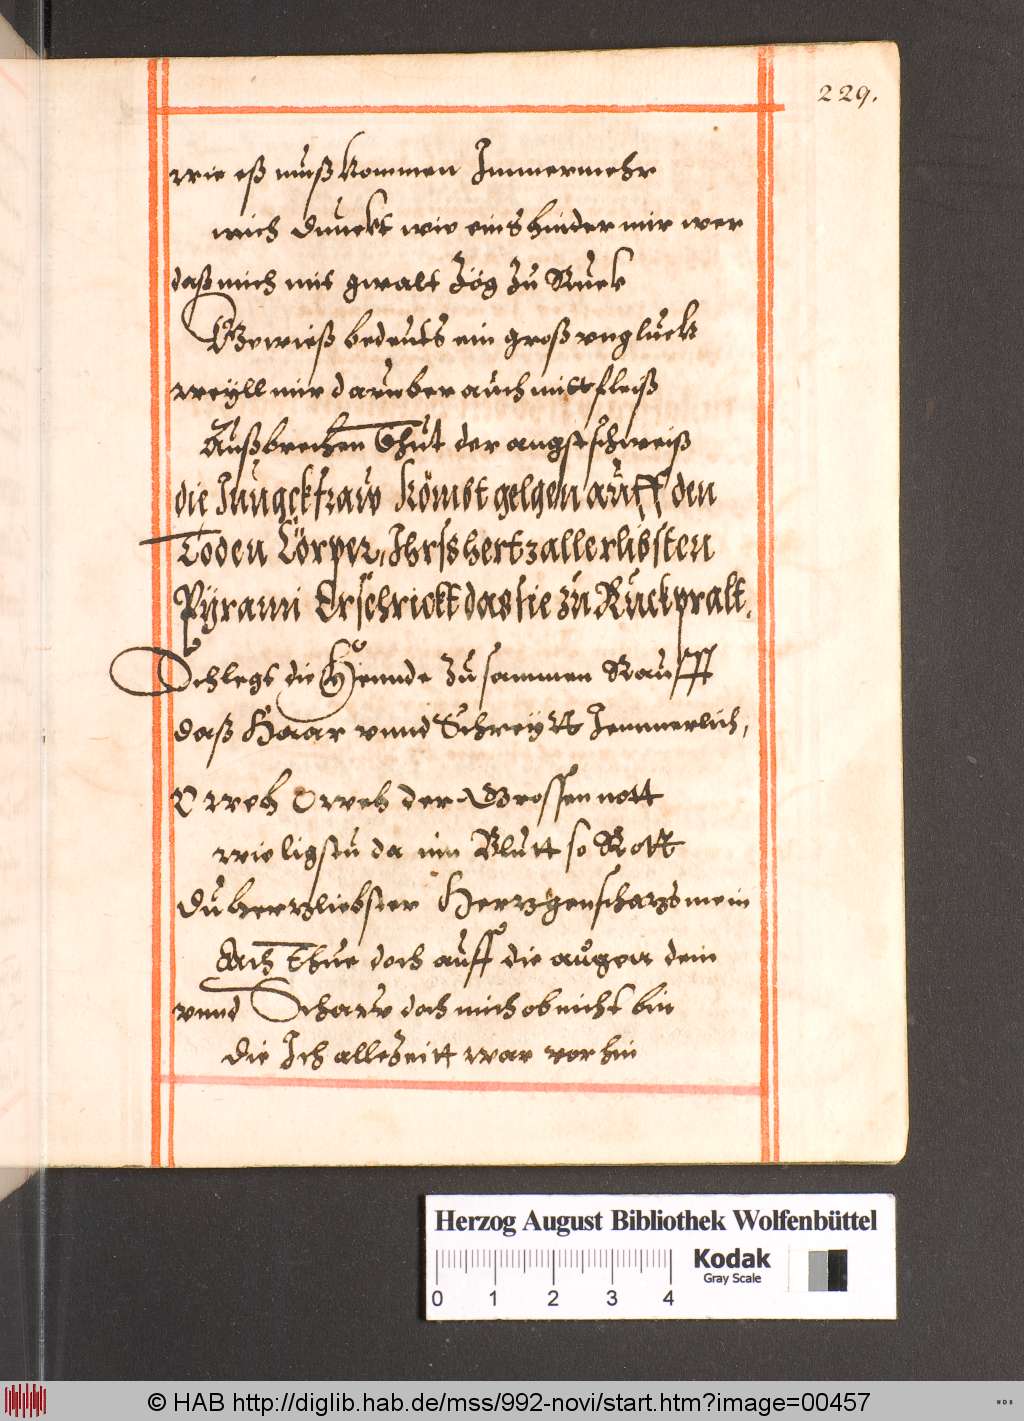 229.
wie eß muß kommen Immermehr
mich dunckt wie eins hinder mir wer
daß mich mit gwalt Zög Zu Ruck
Gewieß bedeuts ein groß vngluckt
weyll mir daruber auch mitt fleiß
Außbrechen Thut der angstschweiß
die Jungckfraw Kömbt gelgen auff den
Toden Cörper, Ihrss hertzallerlibsten
Pÿrami Erschrickt das sie zu Ruckpralt.
Schlegt die Hennde Zusammen Raufft
daß Haar vnnd Schreytt Jemmerlich,
O weh O weh der Grossen nott
wie ligstu da im Blutt so Rott
du herzliebster Herzgenschatz mein
Ach Thue doch auff die augen dein
vnnd Schaw doch mich ob nicht bin
die Ich alleZeitt war vorhin
Herzog August Bibliothek Wolfenbüttel
0 1 2 3 4
Kodak
Gray Scale
© HAB http://diglib.hab.de/mss/992-novi/start.htm?image=00457